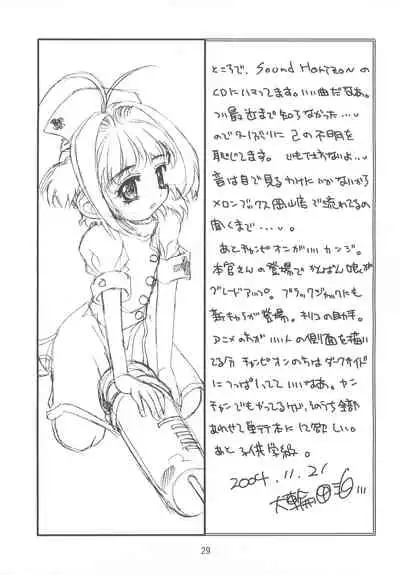 ところで、Sound Horizon の
CDにハマってます。いい曲だなぁ。
つい最近まで知らなかった…
ので 己の不明を
恥じてます。 でも仕方ないよ…
音は目で見るわけにいかないから
メロンブックス岡山店で流れてるの
聞くまで…。
あとチャンピオンがいいカンジ。
本官さんの登場で かんばん娘も
ブレードアップ。ブラックジャックにも
新キャラが登場。キリコの助手。
アニメの方がいい人の側面を描い
てる分チャンピオンの方はダークサイド
につっぱしってていいなあ。ヤン
チャンでもやってるけど、そのうち全部
あわせて単行本にして欲しい。
あと子供学級。
2004.11.21
大輪
29